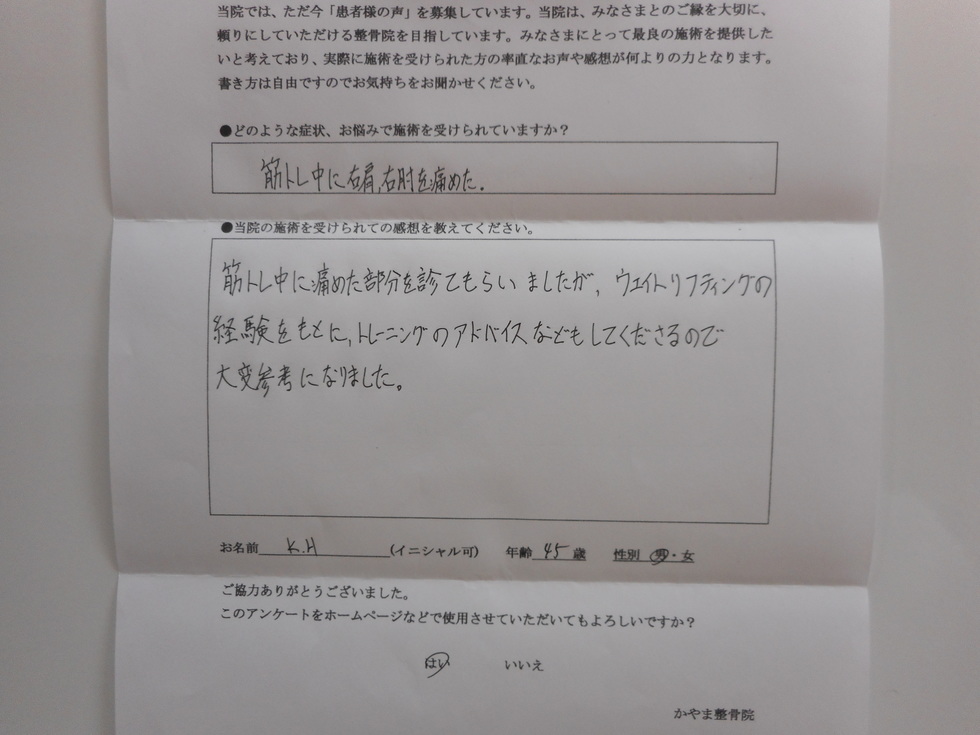 当院では、ただ今「患者様の声」を募集しています。当院は、みなさまとのご縁を大切に、
頼りにしていただける整骨院を目指しています。みなさまにとって最良の施術を提供した
いと考えており、実際に施術を受けられた方の率直なお声や感想が何よりの力となります。
書き方は自由ですのでお気持ちをお聞かせください。
●どのような症状、お悩みで施術を受けられていますか？
筋トレ中に右肩,右肘を痛めた。
●当院の施術を受けられての感想を教えてください。
筋トレ中に痛めた部分を診てもらいましたが、ウエイトリフティングの
経験をもとに、トレーニングのアドバイスなどもしてくださるので
大変参考になりました。
お名前 K.H (イニシャル可) 年齢 45 歳 性別 男・女
ご協力ありがとうございました。
このアンケートをホームページなどで使用させていただいてもよろしいですか？
はい いいえ
かやま整骨院